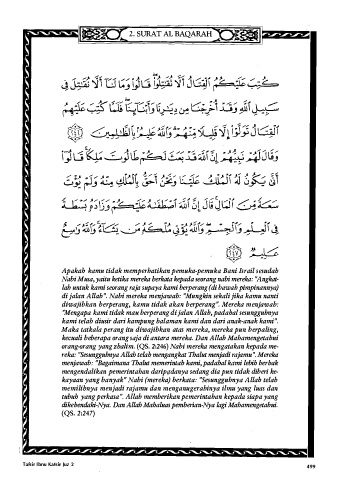 2. SURAT AL BAQARAH
كُتِبَ عَلَيْكُمُ ٱلْقِتَالُ أَلَّا تُقَٰتِلُوا۟ قَالُوا۟ وَمَا لَنَآ أَلَّا نُقَٰتِلَ فِى
سَبِيلِ ٱللَّهِ وَقَدْ أُخْرِجْنَا مِن دِيَٰرِنَا وَأَبْنَآئِنَا فَلَمَّا كُتِبَ عَلَيْهِمُ
ٱلْقِتَالُ تَوَلَّوْا۟ إِلَّا قَلِيلًا مِّنْهُمْ وَٱللَّهُ عَلِيمٌۢ بِٱلظَّٰلِمِينَ ٢٤٦
وَقَالَ لَهُمْ نَبِيُّهُمْ إِنَّ ٱللَّهَ قَدْ بَعَثَ لَكُمْ طَالُوتَ مَلِكًا قَالُوٓا۟
أَنَّىٰ يَكُونُ لَهُ ٱلْمُلْكُ عَلَيْنَا وَنَحْنُ أَحَقُّ بِٱلْمُلْكِ مِنْهُ وَلَمْ يُؤْتَ
سَعَةً مِّنَ ٱلْمَالِ قَالَ إِنَّ ٱللَّهَ ٱصْطَفَىٰهُ عَلَيْكُمْ وَزَادَهُۥ بَسْطَةً
فِى ٱلْعِلْمِ وَٱلْجِسْمِ وَٱللَّهُ يُؤْتِى مُلْكَهُۥ مَن يَشَآءُ وَٱللَّهُ وَٰسِعٌ
عَلِيمٌ ٢٤٧
Apakah kamu tidak memperhatikan pemuka-pemuka Bani Israil sesudah
Nabi Musa, yaitu ketika mereka berkata kepada seorang nabi mereka: "Angkat-
lah untuk kami seorang raja supaya kami berperang (di bawah pimpinannya)
di jalan Allah". Nabi mereka menjawab: "Mungkin sekali jika kamu nanti
diwajibkan berperang, kamu tidak akan berperang". Mereka menjawab:
"Mengapa kami tidak mau berperang di jalan Allah, padahal sesungguhnya
kami telah diusir dari kampung halaman kami dan dari anak-anak kami".
Maka tatkala perang itu diwajibkan atas mereka, mereka pun berpaling,
kecuali beberapa orang saja di antara mereka. Dan Allah Mahamengetahui
orang-orang yang zhalim. (QS. 2:246) Nabi mereka mengatakan kepada me-
reka: "Sesungguhnya Allah telah mengangkat Thalut menjadi rajamu". Mereka
menjawab: "Bagaimana Thalut memerintah kami, padahal kami lebih berhak
mengendalikan pemerintahan daripadanya sedang dia pun tidak diberi ke-
kayaan yang banyak" Nabi (mereka) berkata: "Sesungguhnya Allah telah
memilihnya menjadi rajamu dan menganugerahinya ilmu yang luas dan
tubuh yang perkasa". Allah memberikan pemerintahan kepada siapa yang
dikehendaki-Nya. Dan Allah Mahaluas pemberian-Nya lagi Mahamengetahui.
(QS. 2:247)
Tafsir Ibnu Katsir Juz 2
499